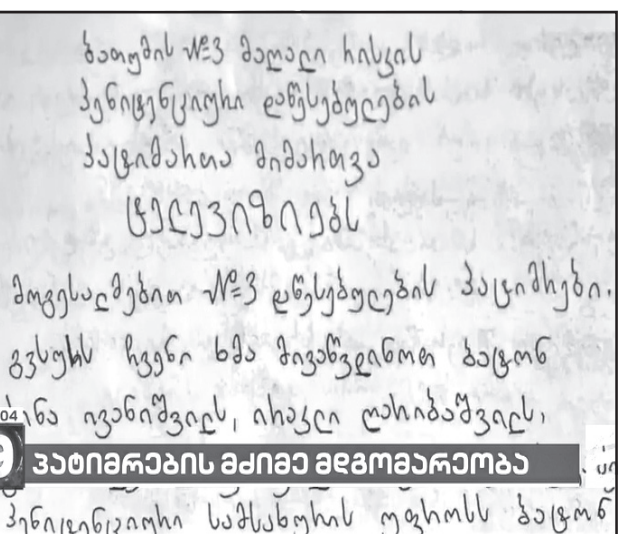 ბათუმის №3 მაღალი რისკის
პენიტენციური დაწესებულების
პატიმართა მიმართვა
ტელევიზიებს
მოგესალმებით №3 დაწესებულების პატიმრები.
გვსურს ჩვენი ხმა მივაწვდინოთ ბატონ
ივანიშვილს, ირაკლი ღარიბაშვილს,
04
პატიმრების მძიმე მდგომარეობა
პენიტენციური სამსახურის უფროსს ბატონ